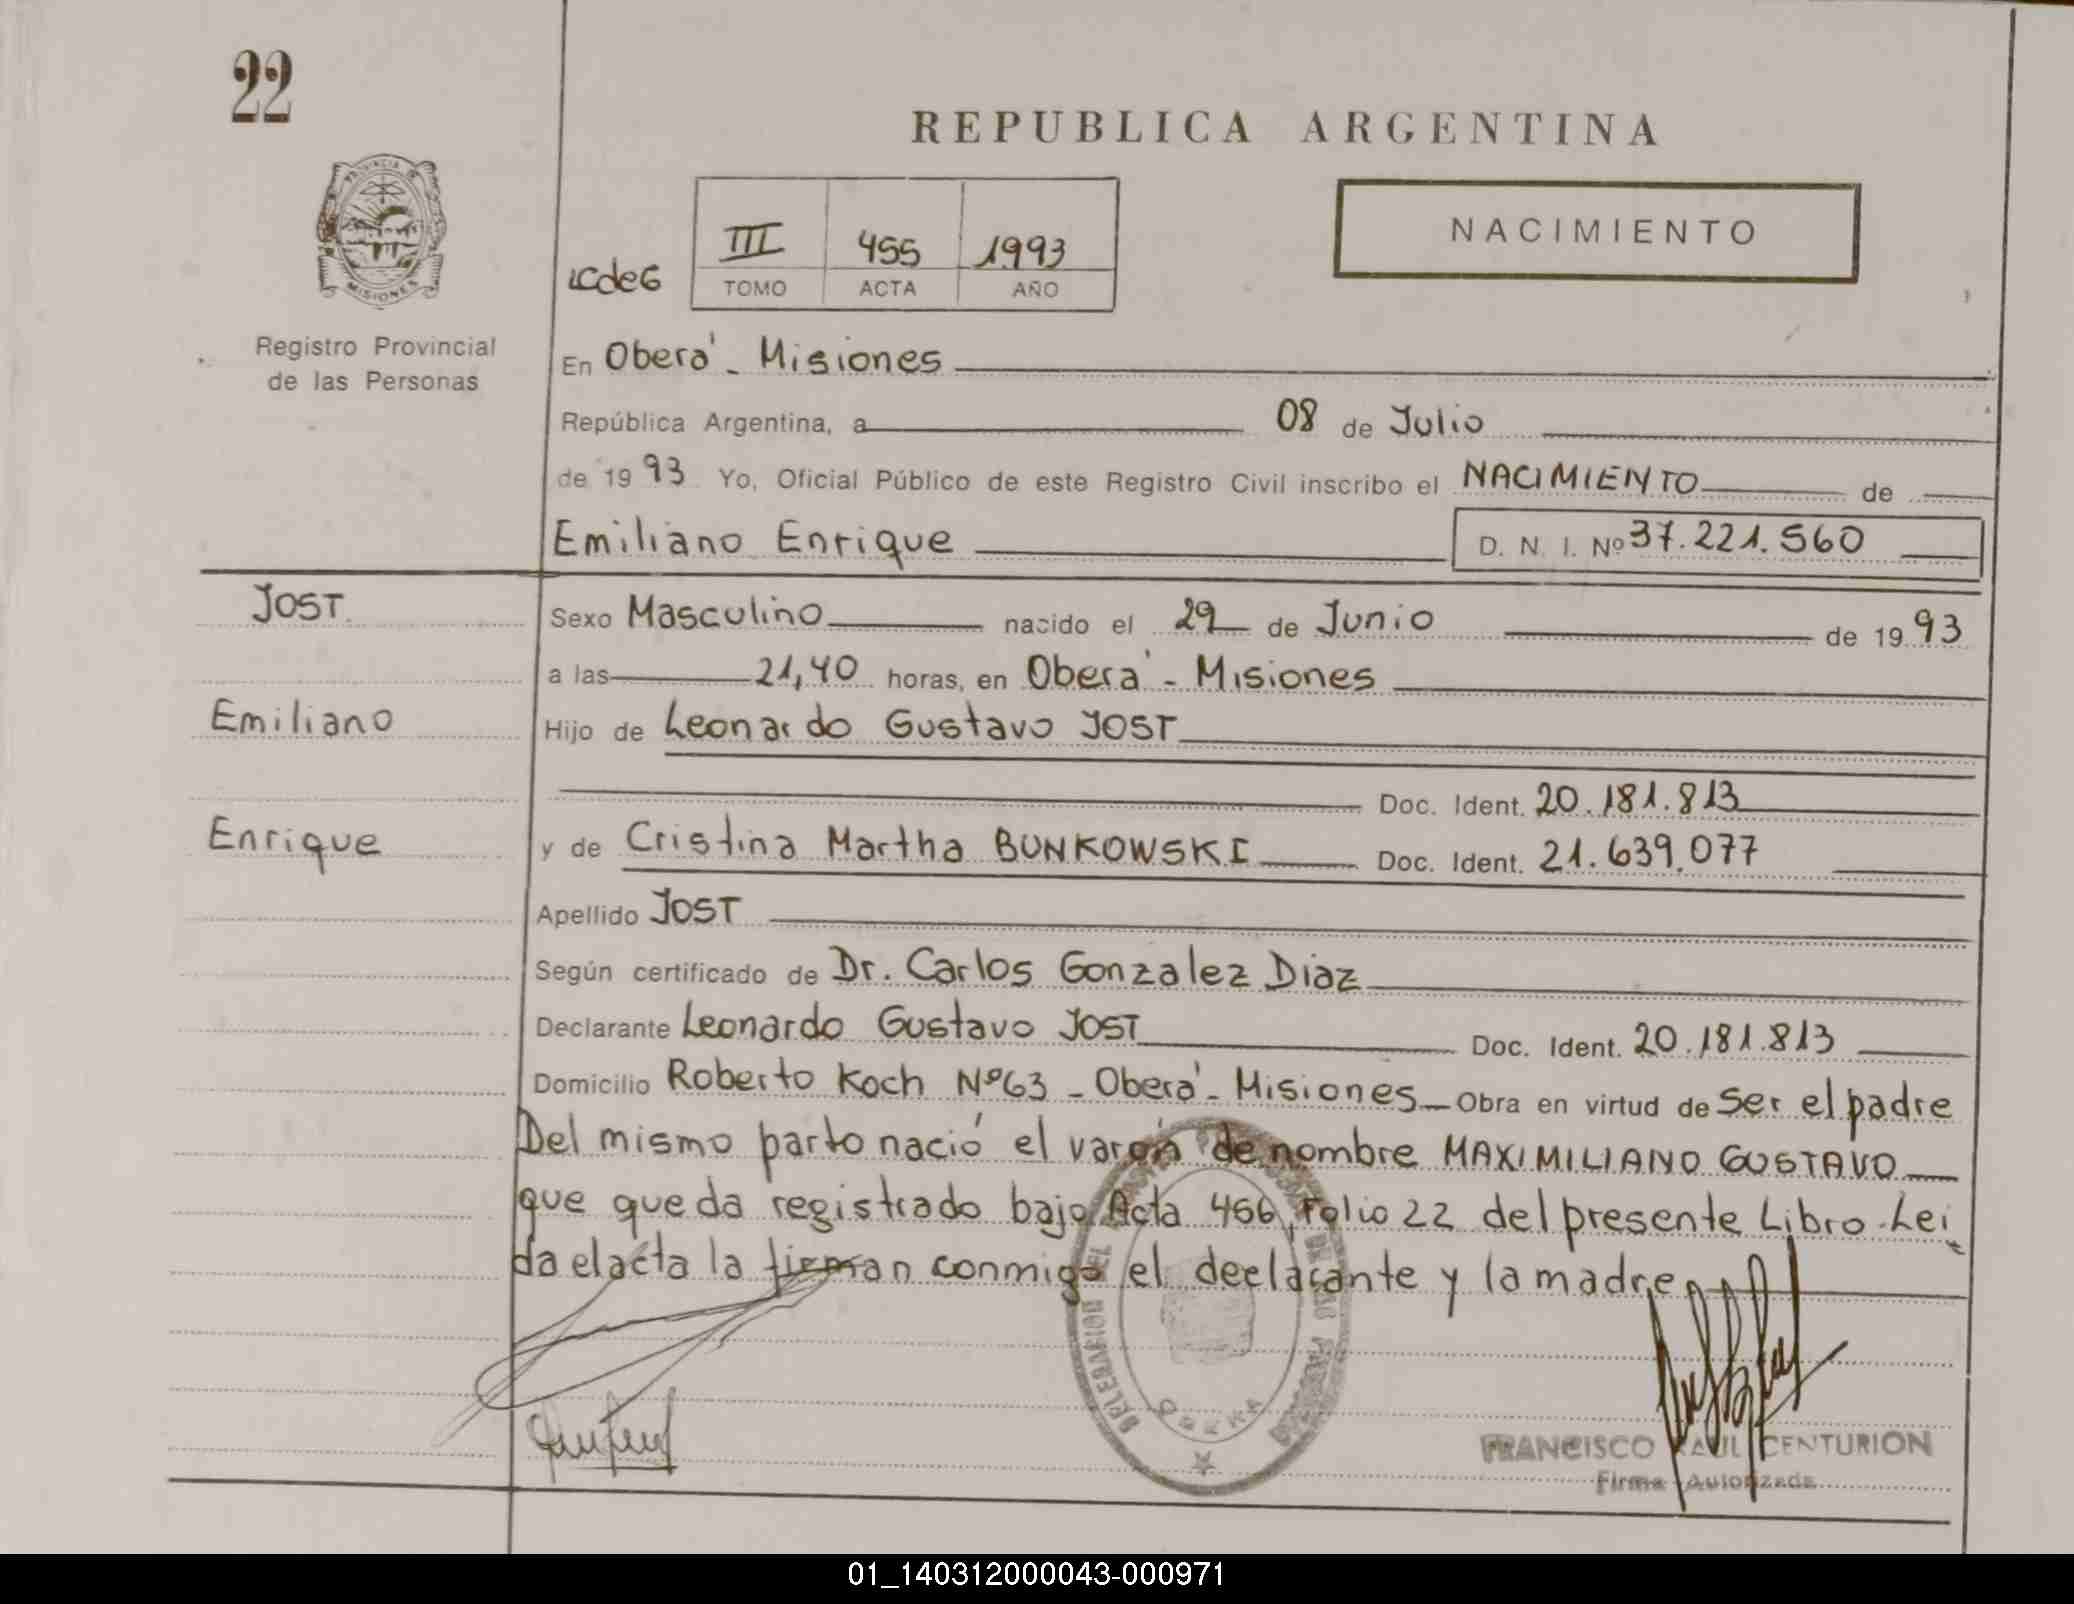 22
REPUBLICA ARGENTINA
PROVINCIA DE
MISIONES
III 455 1993
TOMO ACTA AÑO
NACIMIENTO
Registro Provincial
de las Personas
En Oberá - Misiones
República Argentina, a 08 de Julio
de 1993 Yo, Oficial Público de este Registro Civil inscribo el NACIMIENTO de
Emiliano Enrique D. N. I. Nº 37.221.560
JOST
Sexo Masculino nacido el 29 de Junio de 1993
a las 21,40 horas, en Oberá - Misiones
Emiliano
Hijo de Leonardo Gustavo JOST
Doc. Ident. 20.181.813
Enrique
y de Cristina Martha BUNKOWSKI Doc. Ident. 21.639.077
Apellido JOST
Según certificado de Dr. Carlos Gonzalez Diaz
Declarante Leonardo Gustavo JOST Doc. Ident. 20.181.813
Domicilio Roberto Koch Nº63 - Oberá - Misiones Obra en virtud de Ser el padre
Del mismo parto nació el varón de nombre MAXIMILIANO GUSTAVO
que queda registrado bajo Acta 456, Folio 22 del presente Libro. Lei
da el acta la firman conmigo el declarante y la madre
OBERA
FRANCISCO RAUL CENTURION
Firma Autorizada
01_140312000043-000971